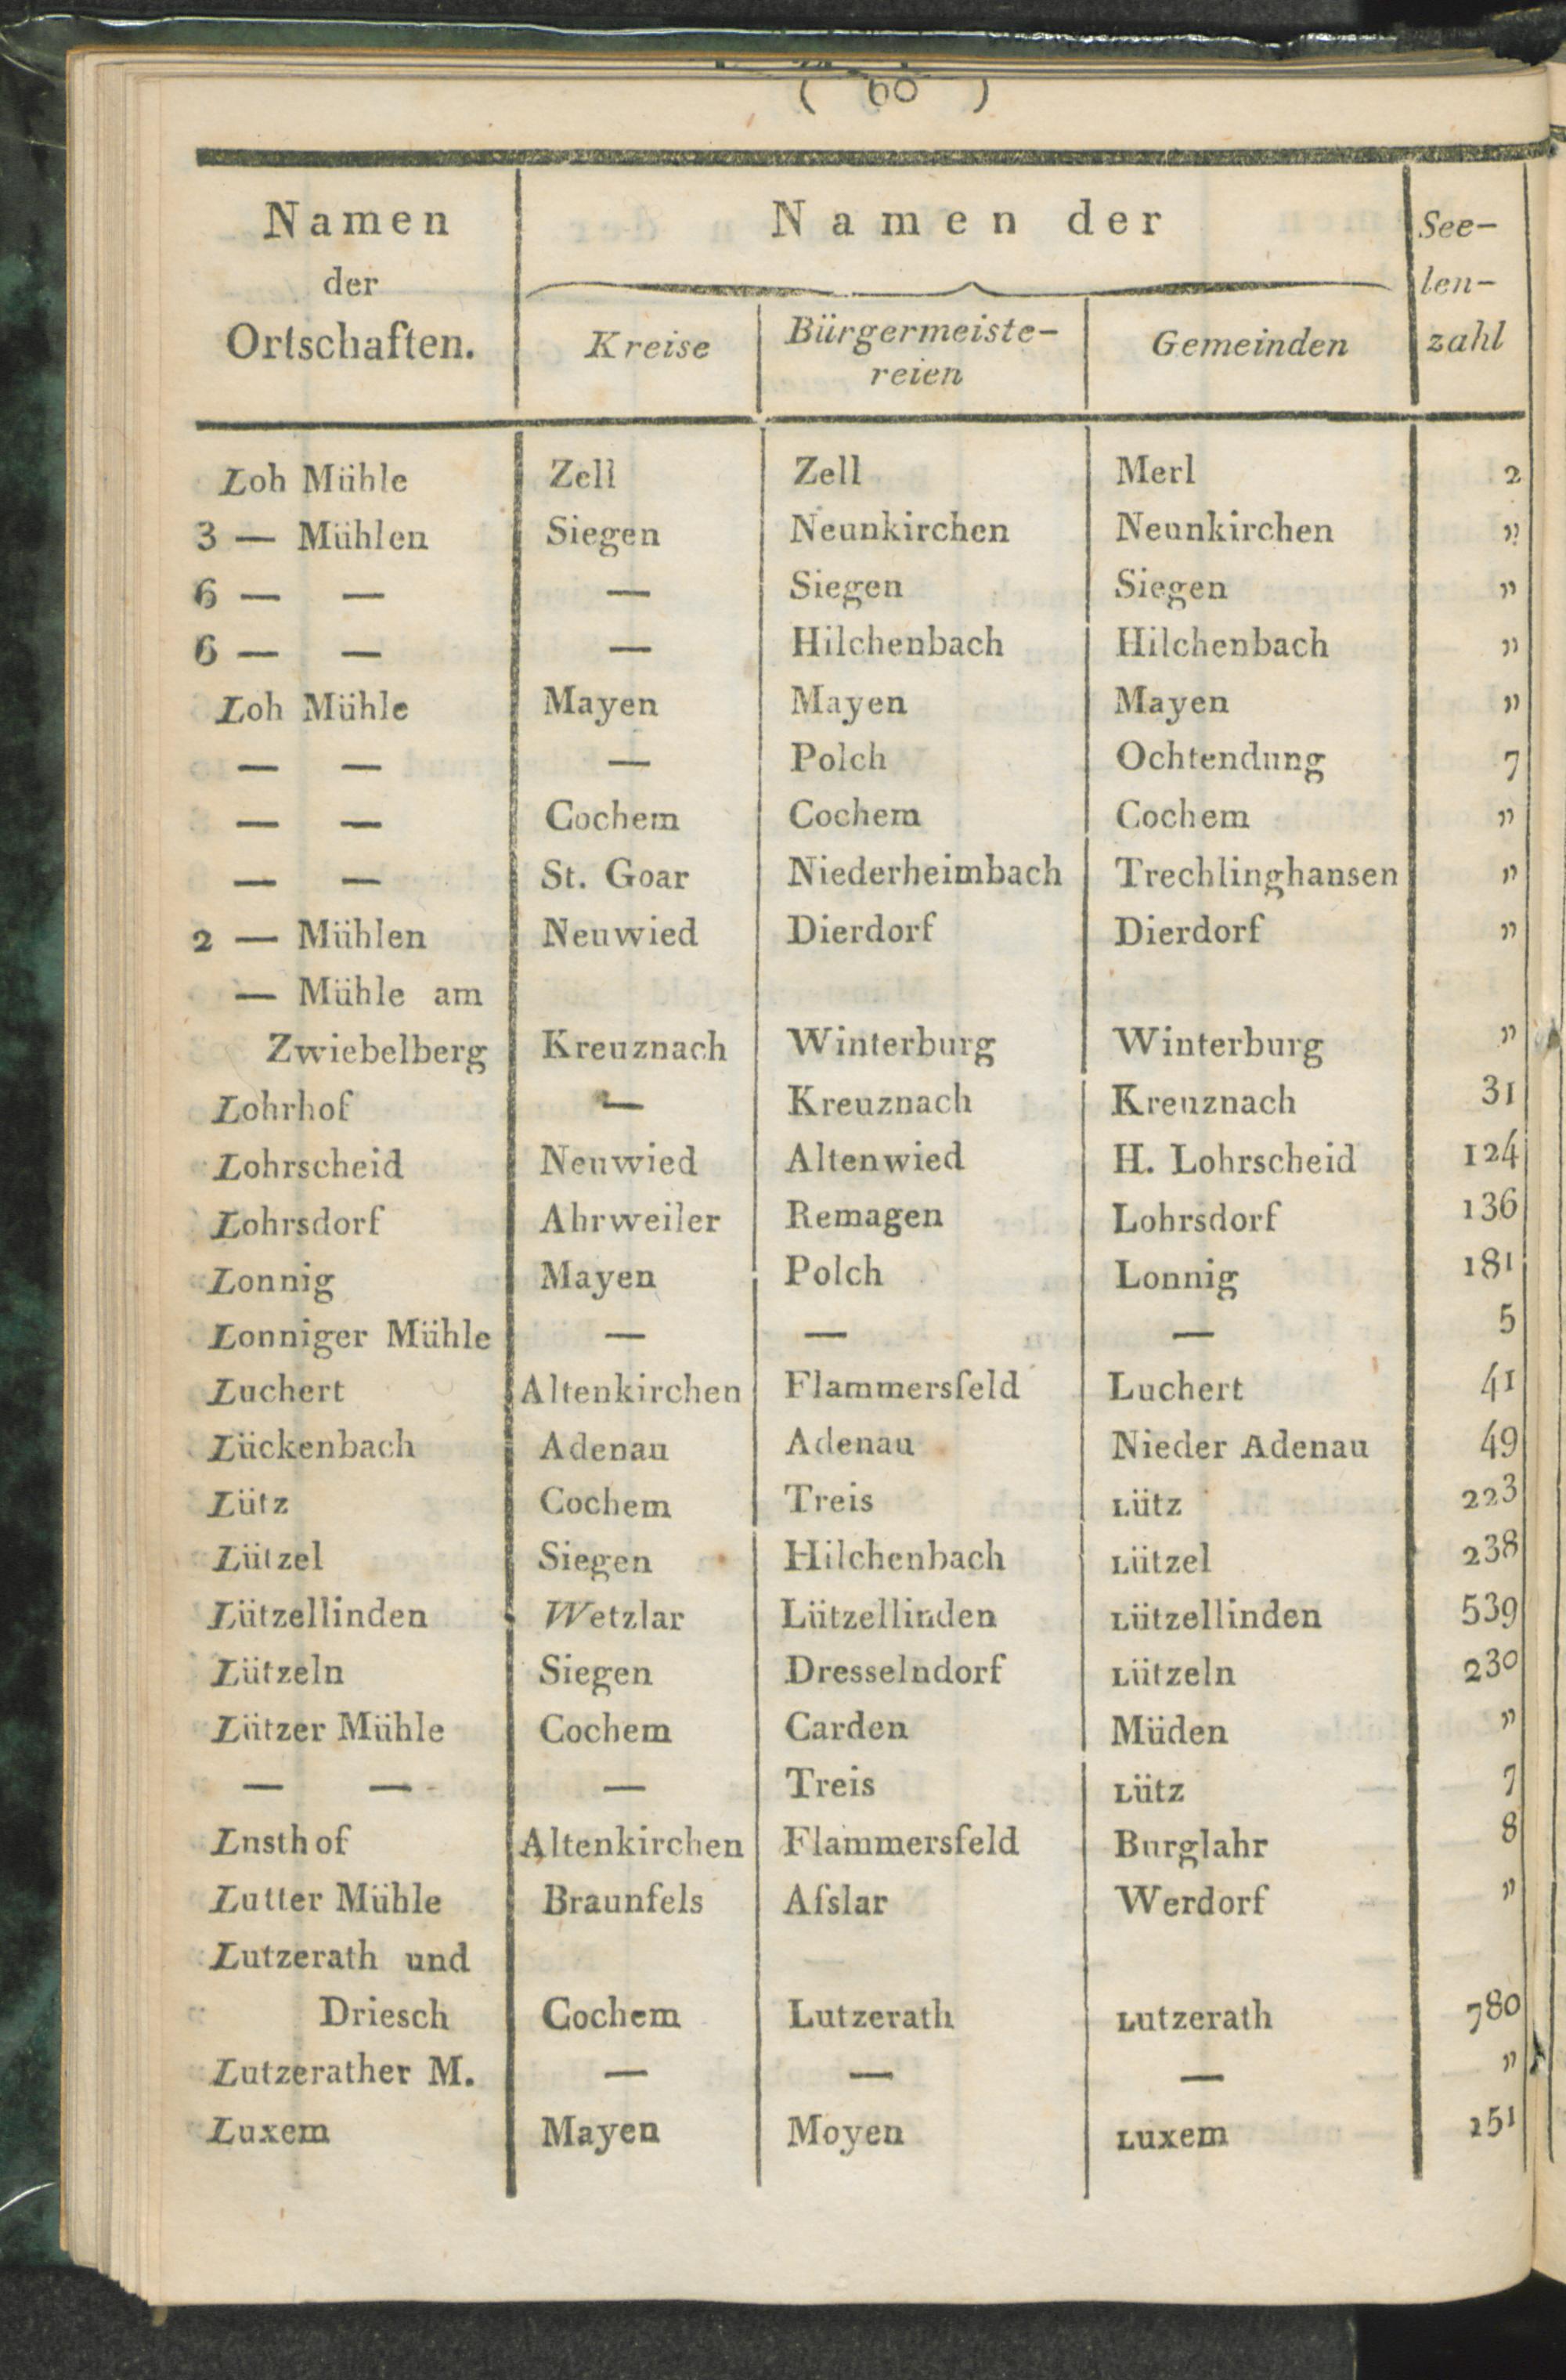 ( 60 )
Namen Namen der See-
der len-
Ortschaften. Kreise Bürgermeiste- Gemeinden zahl
reien
Loh Mühle Zell Zell Merl 2
3 — Mühlen Siegen Neunkirchen Neunkirchen „
6 — — — Siegen Siegen „
6 — — — Hilchenbach Hilchenbach „
Loh Mühle Mayen Mayen Mayen „
— — — Polch Ochtendung 7
— — Cochem Cochem Cochem „
— — St. Goar Niederheimbach Trechlinghansen „
2 — Mühlen Neuwied Dierdorf Dierdorf „
— Mühle am
Zwiebelberg Kreuznach Winterburg Winterburg „
Lohrhof — Kreuznach Kreuznach 31
Lohrscheid Neuwied Altenwied H. Lohrscheid 124
Lohrsdorf Ahrweiler Remagen Lohrsdorf 136
Lonnig Mayen Polch Lonnig 181
Lonniger Mühle — — — 5
Luchert Altenkirchen Flammersfeld Luchert 41
Lückenbach Adenau Adenau Nieder Adenau 49
Lütz Cochem Treis Lütz 223
Lützel Siegen Hilchenbach Lützel 238
Lützellinden Wetzlar Lützellinden Lützellinden 539
Lützeln Siegen Dresselndorf Lützeln 230
Lützer Mühle Cochem Carden Müden „
— — — Treis Lütz 7
Lusthof Altenkirchen Flammersfeld Burglahr 8
Lutter Mühle Braunfels Aſslar Werdorf „
Lutzerath und
Driesch Cochem Lutzerath Lutzerath 780
Lutzerather M. — — — „
Luxem Mayen Moyen Luxem 151